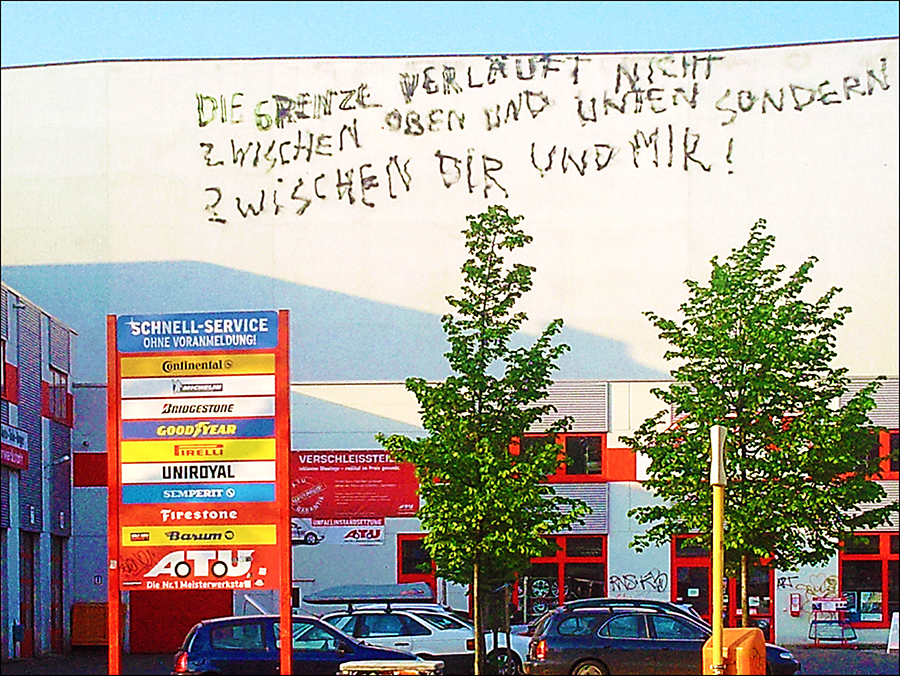 DIE GRENZE VERLÄUFT NICHT
ZWISCHEN OBEN UND UNTEN SONDERN
ZWISCHEN DIR UND MIR!
SCHNELL-SERVICE
OHNE VORANMELDUNG!
Continental
MICHELIN
BRIDGESTONE
GOODYEAR
PIRELLI
UNIROYAL
SEMPERIT
Firestone
Barum
ATU
Die Nr.1 Meisterwerkstatt
VERSCHLEISSTEI
inklusive Montage - radikal im Preis
UNFALLINSTANDSETZUNG
ATU